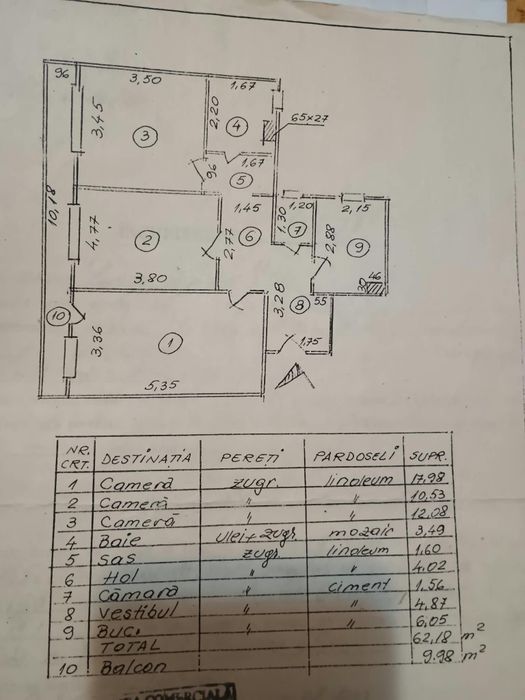 96
3,50
1,67
3,45
2,20
65x27
3
4
96
1,67
5
10,18
4,77
2
3,80
1,45
6
2,77
1,20
1,30
7
2,15
2,88
9
46
30
3,28
8
55
1,75
10
3,36
1
5,35
NR. CRT. DESTINAȚIA PEREȚI PARDOSELI SUPR.
1 Cameră zugr. linoleum 17,98
2 Cameră " " 10,53
3 Cameră " " 12,08
4 Baie ulei+zugr. mozaic 3,49
5 Sas zugr. linoleum 1,60
6 Hol " " 4,02
7 Cămară " ciment 1,56
8 Vestibul " " 4,87
9 Buc. " " 6,05
TOTAL 62,18 m²
10 Balcon 9,98 m²
COMERCIALĂ